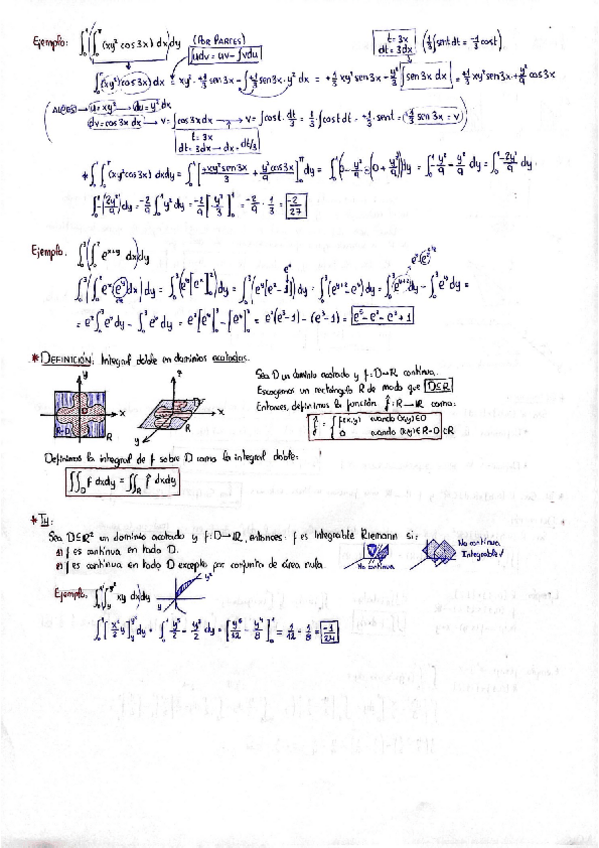 Ejemplo: ∫₀¹(∫₀^π (xy² cos 3x) dx)dy (POR PARTES) ∫udv = uv - ∫vdu t=3x dt=3dx (1/3 ∫sent dt = -1/3 cost)
∫(xy²)(cos3x) dx = xy² · 1/3 sen3x - ∫1/3 sen3x · y² dx = 1/3 xy² sen3x - y²/3 ∫sen3x dx = 1/3 xy² sen3x + y²/9 cos3x
u=xy² → du=y² dx
dv=cos3x dx → v=∫cos3x dx → v=∫cost · dt/3 = 1/3 ∫cost dt = 1/3 · sent = (1/3 sen3x = v)
t=3x
dt=3dx → dx=dt/3
* ∫₀¹∫₀^π (xy² cos3x) dxdy = ∫₀¹[xy² sen3x/3 + y² cos3x/9]₀^π dy = ∫₀¹(0 - y²/9 - (0 + y²/9))dy = ∫₀¹ -y²/9 - y²/9 dy = ∫₀¹ -2y²/9 dy
∫₀¹ -(2y²/9)dy = -2/9 ∫₀¹ y² dy = -2/9 [y³/3]₀¹ = -2/9 · 1/3 = -2/27
Ejemplo. ∫₀³(∫₀² e^(x+y) dx)dy
= e² ∫₀³ e^y dy - ∫₀³ e^y dy = e² [e^y]₀³ - [e^y]₀³ = e²(e³-1) - (e³-1) = e⁵ - e² - e³ + 1
* DEFINICIÓN: Integral doble en dominios acotados.
Sea D un dominio acotado y f: D→ℝ continua.
Escogemos un rectángulo R de modo que D⊆R
Entonces, definimos la función f̂: R→ℝ como:
f̂ = { f(x,y) cuando (x,y)∈D
0 cuando (x,y)∈R-D ⊂R
y
x
R-D
R
z
D
x
y
R
Definimos la integral de f sobre D como la integral doble:
∬_D f dxdy = ∬_R f̂ dxdy
* Tª:
Sea D⊆ℝ² un dominio acotado y f: D→ℝ, entonces: f es integrable Riemann si:
1) f es continua en todo D.
2) f es continua en todo D excepto por conjunto de área nula.
No continua
No continua
Integrable ✓
y²
y
x